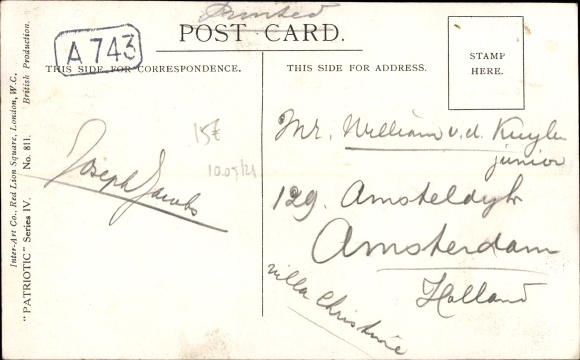 Printed
POST CARD.
A 743
THIS SIDE FOR CORRESPONDENCE.
THIS SIDE FOR ADDRESS.
STAMP
HERE.
Inter-Art Co., Red Lion Square, London, W.C.
British Production.
"PATRIOTIC" Series IV. No. 811.
15€
10.05/21
Joseph Jacobs
Mr. William v. d. Kuyler
junior
129. Amsteldyk
Amsterdam
Holland
villa Christine